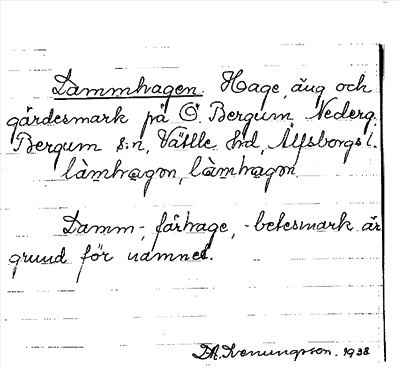 Lammhagen. Hage, äng och
gärdesmark på Ö. Bergum Nederg.
Bergum s:n, Vättle hd, Älfsborgs l.
làmhagon, làmhagon.
Lamm-, fårhage, -betesmark är
grund för namnet.
1938